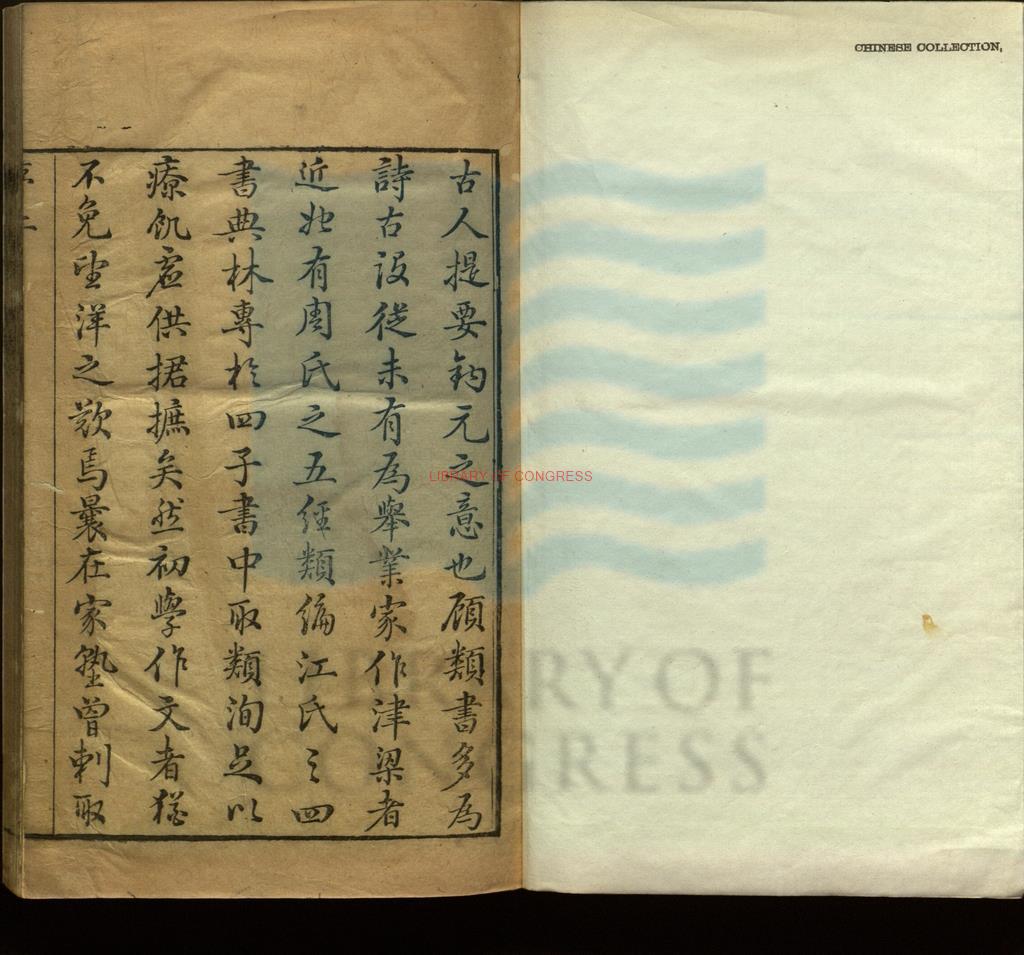 古人提要鈎元之意也顧類書多爲
詩古設從未有爲舉業家作津梁者
近世有周氏之五經類編江氏之四
書典林專於四子書中取類洵足以
療飢虛供捃摭矣然初學作文者猶
不免望洋之歎焉曩在家塾曾刺取
序 二
CHINESE COLLECTION,
LIBRARY OF CONGRESS
LIBRARY OF CONGRESS